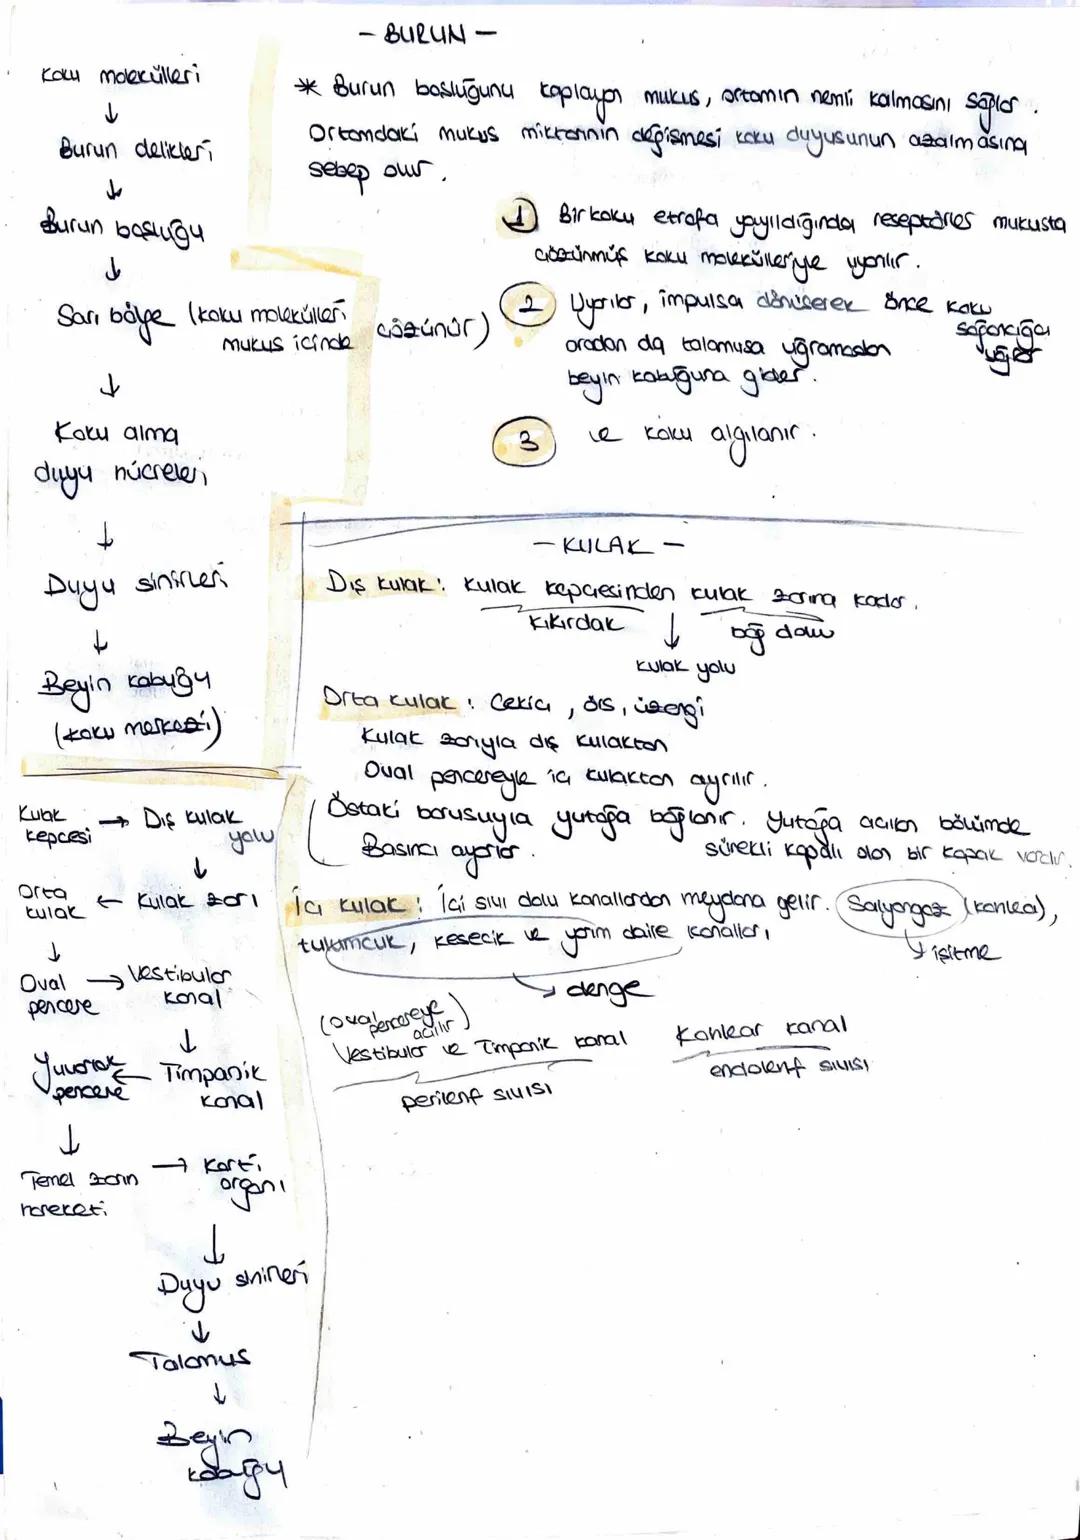 - BURUN -
Koku molekülleri
↓
Burun delikleri
↓
Burun boşluğu
↓
Sarı bölge (koku molekülleri
mukus içinde çözünür)
↓
Koku alma
duyu hücreleri
↓
Duyu sinirleri
↓
Beyin kabuğu
(koku merkezi)
* Burun boşluğunu kaplayan mukus, ortamın nemli kalmasını sağlar.
Ortamdaki mukus miktarının değişmesi koku duyusunun azalmasına
sebep olur.
1 Bir koku etrafa yayıldığında reseptörler mukusta
çözünmüş koku molekülleriyle uyarılır.
2 Uyarılar, impulsa dönüşerek önce koku
soğancığına
uğrar
oradan da talamusa uğramadan
beyin kabuğuna gider.
3 ve koku algılanır.
- KULAK -
Dış kulak: Kulak kepçesinden kulak zarına kadar.
kıkırdak ↓ bağ doku
kulak yolu
Orta kulak: Çekiç, örs, üzengi
Kulak zarıyla dış kulaktan
Oval pencereyle iç kulaktan ayrılır.
Östaki borusuyla yutağa bağlanır. Yutağa açılan bölümde
Basıncı ayarlar. sürekli kapalı olan bir kapak vardır.
İç kulak: İçi sıvı dolu kanallardan meydana gelir. Salyangoz (kohlea),
tulumcuk, kesecik ve yarım daire kanalları
→ işitme
→ denge
(oval pencereye
açılır)
Vestibular ve Timpanik kanal Kohlear kanal
perilenf sıvısı endolenf sıvısı
Kulak kepçesi → Dış kulak yolu
↓
Orta kulak ← Kulak zarı
↓
Oval pencere → Vestibular kanal
↓
Yuvarlak pencere ← Timpanik kanal
↓
Temel zarın hareketi → Korti organı
↓
Duyu sinirleri
↓
Talamus
↓
Beyin
kabuğu